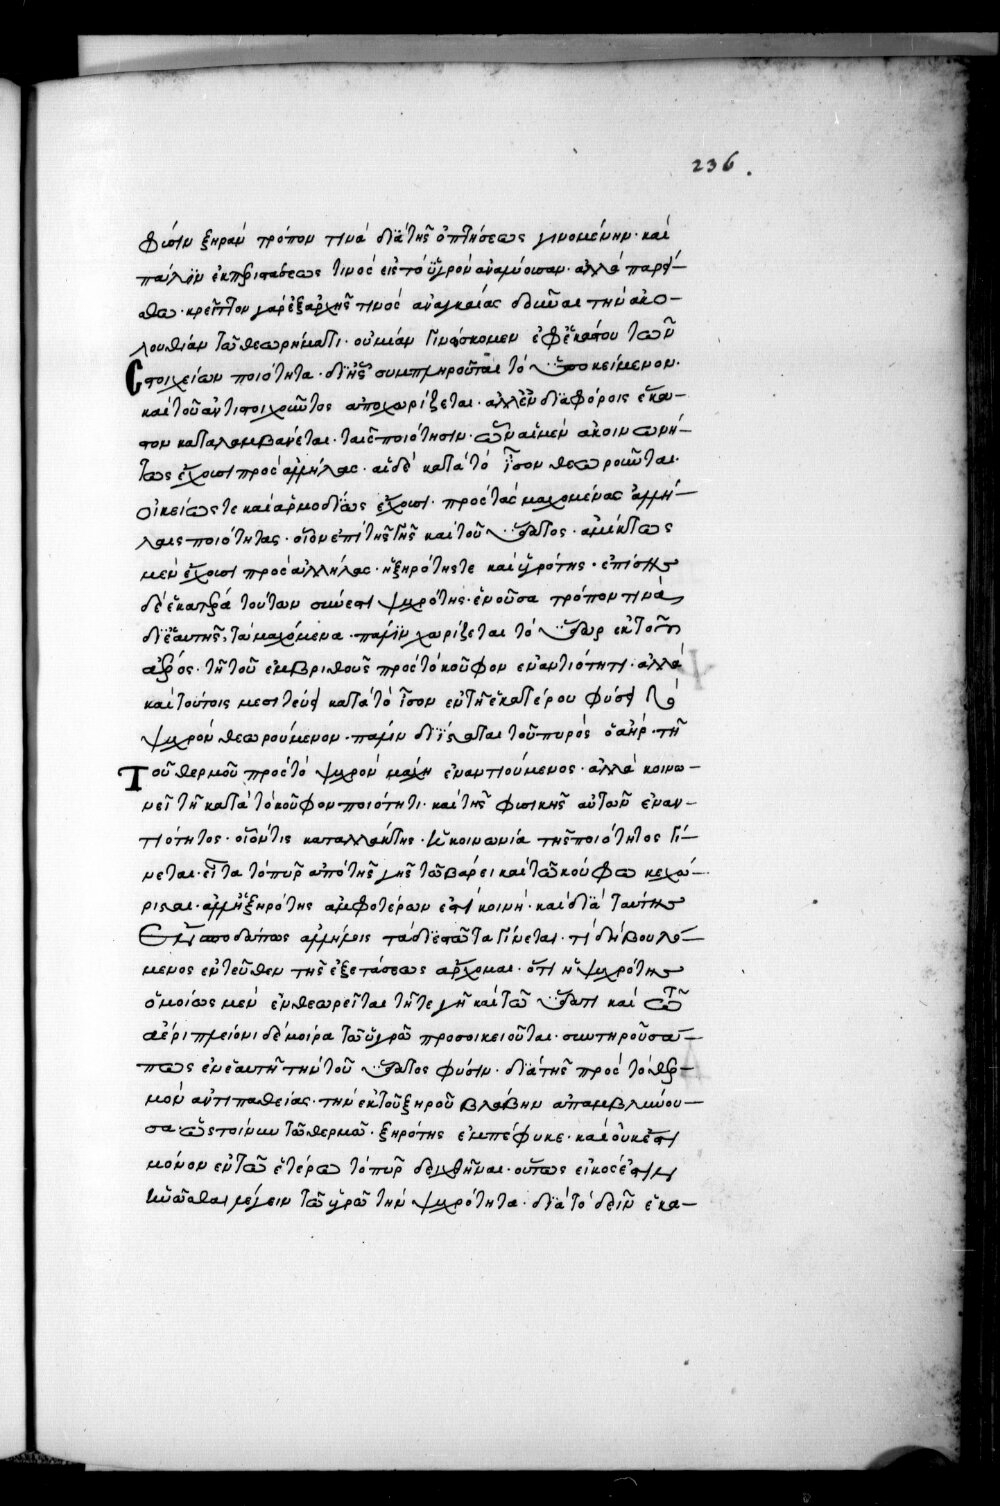 236.
φύσιν ξηρὰν τρόπον τινὰ διὰ τῆς ὀπτήσεως γινομένην· καὶ
πάλιν ἐκ πυριτάσεως τινὸς εἰς τὸ ὑγρὸν ἀναλύουσαν· ἀλλὰ παρεί-
σθω· κρεῖττον γὰρ ἐξ ἀρχῆς τινὸς ἀναγκαίας δοῦναι τὴν ἀκο-
λουθίαν τῷ θεωρήματι· οὐ μίαν γινώσκομεν ἐφ' ἑκάστου τῶν
στοιχείων ποιότητα· δι' ἧς συμπληροῦται τὸ ὑποκείμενον·
καὶ τοῦ ἀντιστοιχοῦντος ἀποχωρίζεται· ἀλλ' ἐν διαφόροις ἕκα-
στον καταλαμβάνεται· ταῖς ποιότησιν· ὧν αἱ μὲν ἀκοινωνή-
τως ἔχουσι πρὸς ἀλλήλας· αἱ δὲ κατὰ τὸ ἴσον θεωροῦνται·
οἰκείως τε καὶ ἁρμοδίως ἔχουσι· πρὸς τὰς μαχομένας ἀλλή-
λαις ποιότητας· οἷον ἐπὶ τῆς γῆς καὶ τοῦ ὕδατος· ἀμίκτως
μὲν ἔχουσι πρὸς ἀλλήλας· ἡ ξηρότης τε καὶ ὑγρότης· ἐπίσης
δὲ ἑκατέρα τούτων σύνεστι ψυχρότης· ἑνοῦσα τρόπον τινὰ
δι' ἑαυτῆς, τὰ μαχόμενα· πάλιν χωρίζεται τὸ ὕδωρ ἐκ τοῦ
ἀέρος· τῇ τοῦ ἐμβριθοῦς πρὸς τὸ κοῦφον ἐναντιότητι· ἀλλὰ
καὶ τούτοις μεσιτεύει κατὰ τὸ ἴσον ἐν τῇ ἑκατέρου φύσει τὸ
ψυχρὸν θεωρούμενον· πάλιν διίσταται τοῦ πυρὸς ὁ ἀήρ· τῇ
τοῦ θερμοῦ πρὸς τὸ ψυχρὸν μάχῃ ἐναντιούμενος· ἀλλὰ κοινω-
νεῖ τῇ κατὰ τὸ κοῦφον ποιότητι· καὶ τῆς φυσικῆς αὐτῶν ἐναν-
τιότητος· οἷόν τις καταλλάκτης· ἡ κοινωνία τῆς ποιότητος γί-
νεται· εἶτα τὸ πῦρ ἀπὸ τῆς γῆς τῷ βάρει καὶ τῷ κούφῳ κεχώ-
ρισται· ἀλλ' ἡ ξηρότης ἀμφοτέρων ἐστὶ κοινή· καὶ διὰ ταύτης
ἀλλήλοις τὰ διεστῶτα γίνεται· τί δὴ βουλό-
μενος ἐντεῦθεν τῆς ἐξετάσεως ἄρχομαι· ὅτι ἡ ψυχρότης
ὁμοίως μὲν ἐνθεωρεῖται τῇ τε γῇ καὶ τῷ ὕδατι καὶ τῷ
ἀέρι πλείονι δὲ μοίρα τῷ ὑγρῷ προσοικειοῦται· συντηροῦσά
πως ἐν ἑαυτῇ τὴν τοῦ ὕδατος φύσιν· διὰ τῆς πρὸς τὸ θερ-
μὸν ἀντιπαθείας· τὴν ἐκ τοῦ ξηροῦ βλάβην ἀπαμβλύνου-
σα· ὡς τοίνυν τῷ θερμῷ· ξηρότης ἐμπέφυκε· καὶ οὐκ ἔστι
μόνον ἐν τῷ ἑτέρῳ τὸ πῦρ δειχθῆναι· οὕτως εἰκός ἐστιν
λέγειν τῷ ὑγρῷ τὴν ψυχρότητα· διὰ τὸ δεῖν ἑκα-